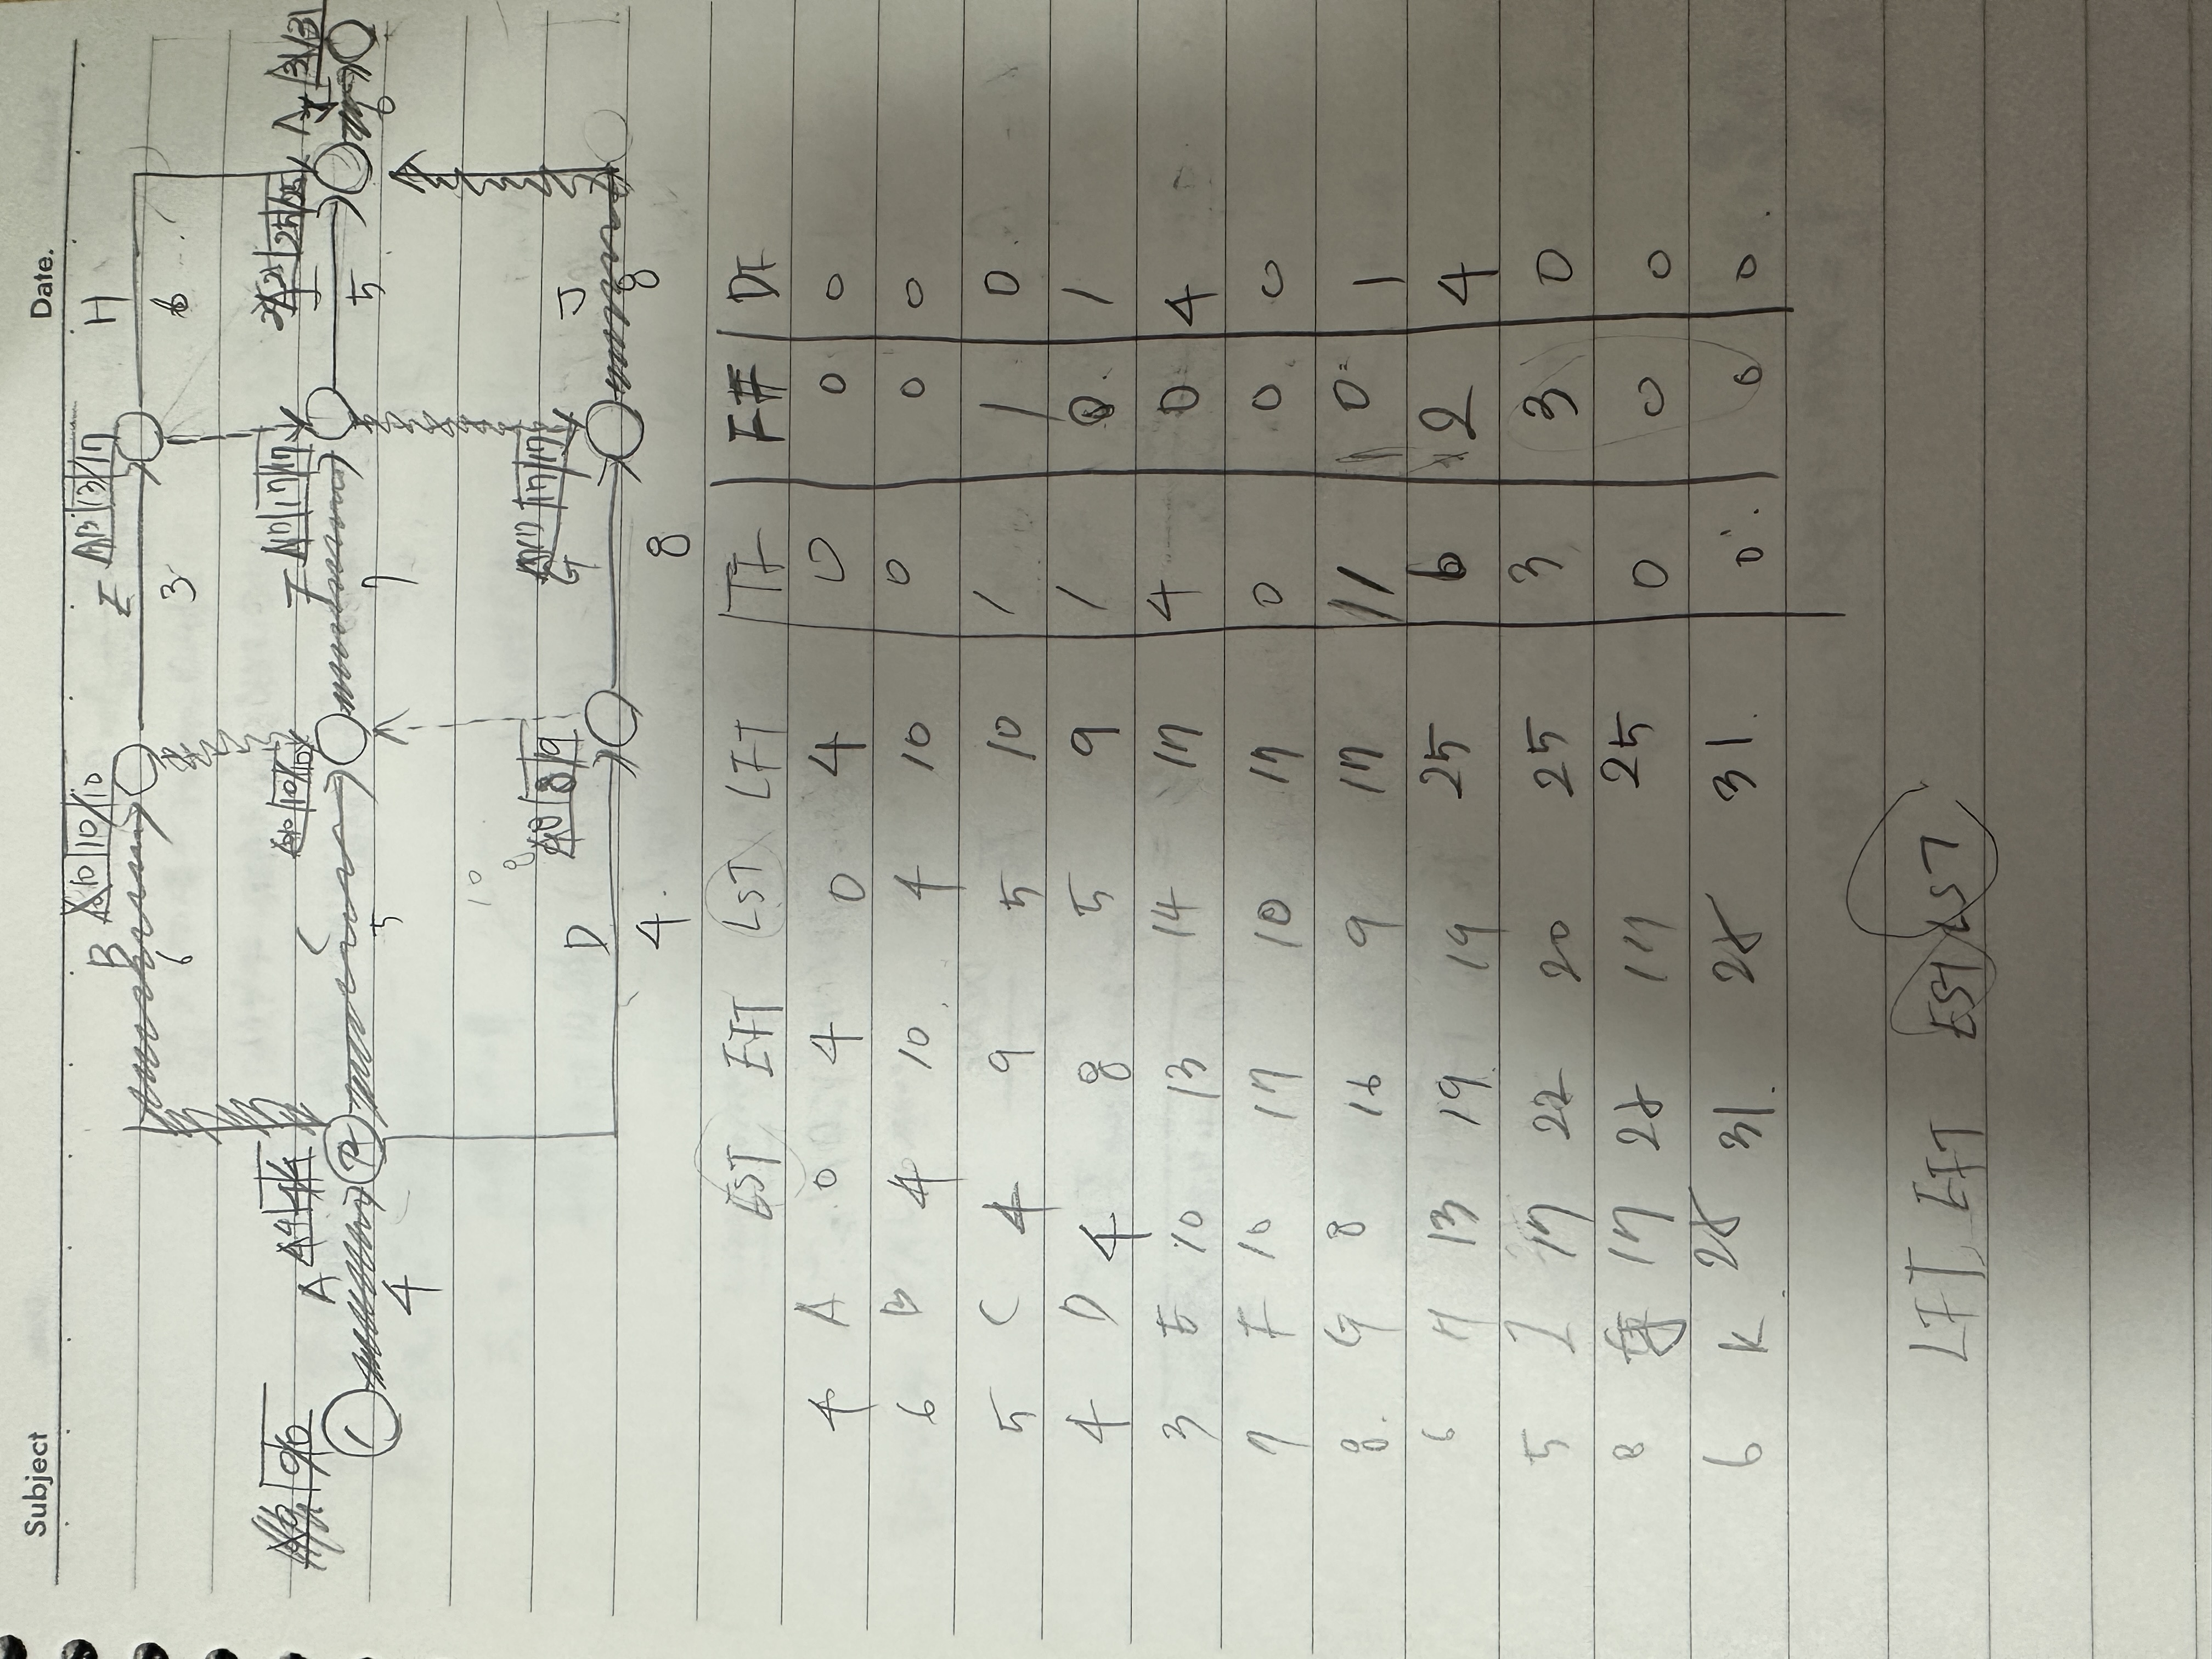 Subject
Date.
B
H
E
6
3
6
A
C
F
J
4
5
7
5
D
G
J
4
8
8
EST EFT LST LFT TF FF DF
4 A 0 4 0 4 0 0 0
6 B 4 10 4 10 0 0 0
5 C 4 9 5 10 1 1 0
4 D 4 8 5 9 1 0 1
3 E 10 13 14 17 4 0 4
7 F 10 17 10 17 0 0 0
8 G 8 16 9 17 1 0 1
6 H 13 19 19 25 6 2 4
5 I 17 22 20 25 3 3 0
8 J 17 25 17 25 0 0 0
6 K 25 31 25 31 0 0 0
LFT EFT EST LST